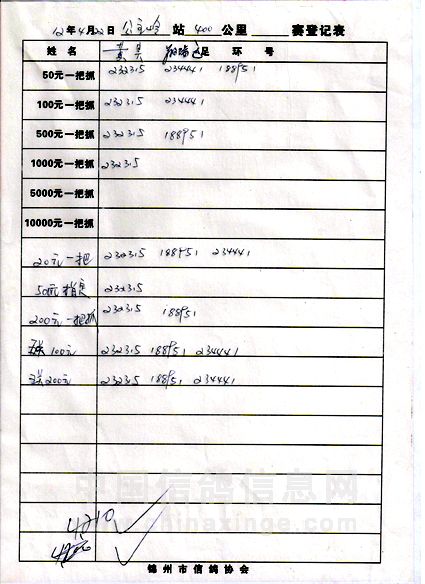 12年4月22日 公主岭 站 400 公里 赛登记表
姓名 足环号
50元一把抓 232315 234441 188951
100元一把抓 232315 234441
500元一把抓 232315 188951
1000元一把抓 232315
5000元一把抓
10000元一把抓
20元一把 232315 188951 234441
50元指定 232315
200元一把抓 232315 188951
100元 232315 188951 234441
200元 232315 188951 234441
中国信鸽信息网
www.chinaxinge.com
4210
锦州市信鸽协会